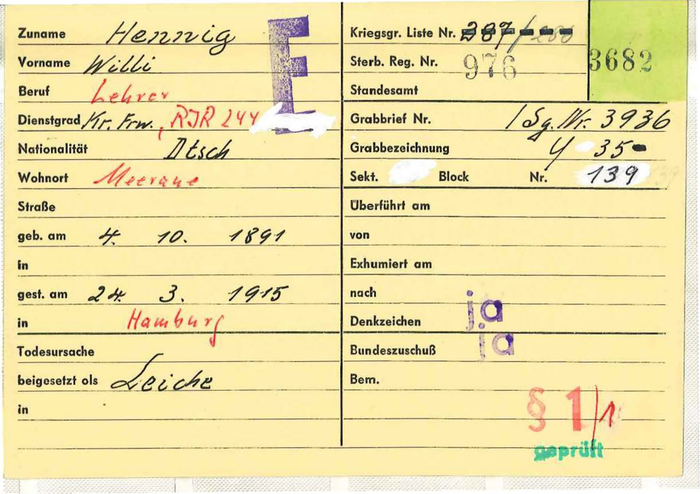 Zuname Hennig
Vorname Willi
Beruf Lehrer
Dienstgrad Kr. Frw., RJR 244
Nationalität Dtsch
Wohnort Meerane
Straße
geb. am 4. 10. 1891
in
gest. am 24. 3. 1915
in Hamburg
Todesursache
beigesetzt als Leiche
in
E
Kriegsgr. Liste Nr. 287/
Sterb. Reg. Nr. 976
3682
Standesamt
Grabbrief Nr. 1 Sg. Nr. 3936
Grabbezeichnung Y 35
Sekt. Block Nr. 139
Überführt am
von
Exhumiert am
nach
Denkzeichen ja
Bundeszuschuß ja
Bem.
§ 1/1
geprüft